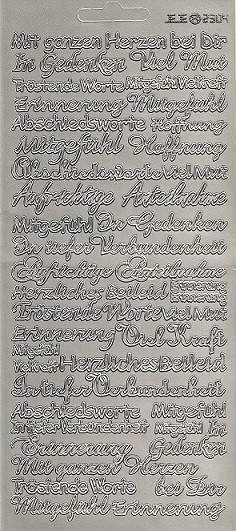 JE 2304
Mit ganzen Herzen bei Dir
In Gedenken Viel Mut
Tröstende Worte Mitgefühl Viel Kraft
Erinnerung Mitgefühl
Abschiedsworte Hoffnung
Mitgefühl Hoffnung
Abschiedsworte Viel Mut
Aufrichtige Anteilnahme
Mitgefühl In Gedenken
In tiefer Verbundenheit
Aufrichtige Anteilnahme
Herzliches Beileid Erinnerung
Erinnerung
Tröstende Worte Viel Mut
Erinnerung Viel Kraft
Mitgefühl
Viel Kraft Herzliches Beileid
In tiefer Verbundenheit
Abschiedsworte Mitgefühl
In tiefer Verbundenheit Viel Mut In
Erinnerung Gedenken
Mit ganzen Herzen
Tröstende Worte bei Dir
Mitgefühl Erinnerung